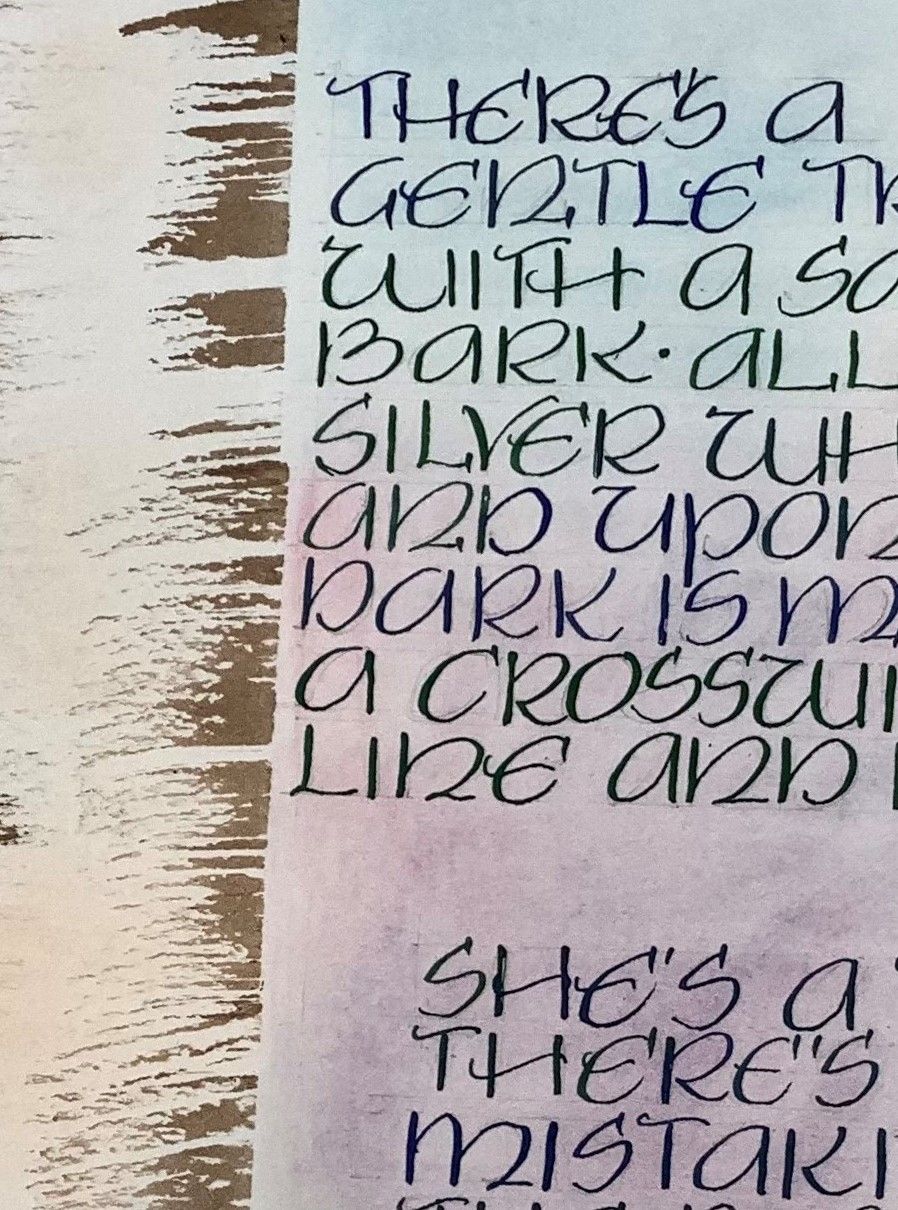 THERE'S A
GENTLE TR
WITH A SO
BARK · ALL
SILVER WH
AND UPON
DARK IS M
A CROSSWI
LINE AND
SHE'S A
THERE'S
MISTAKI